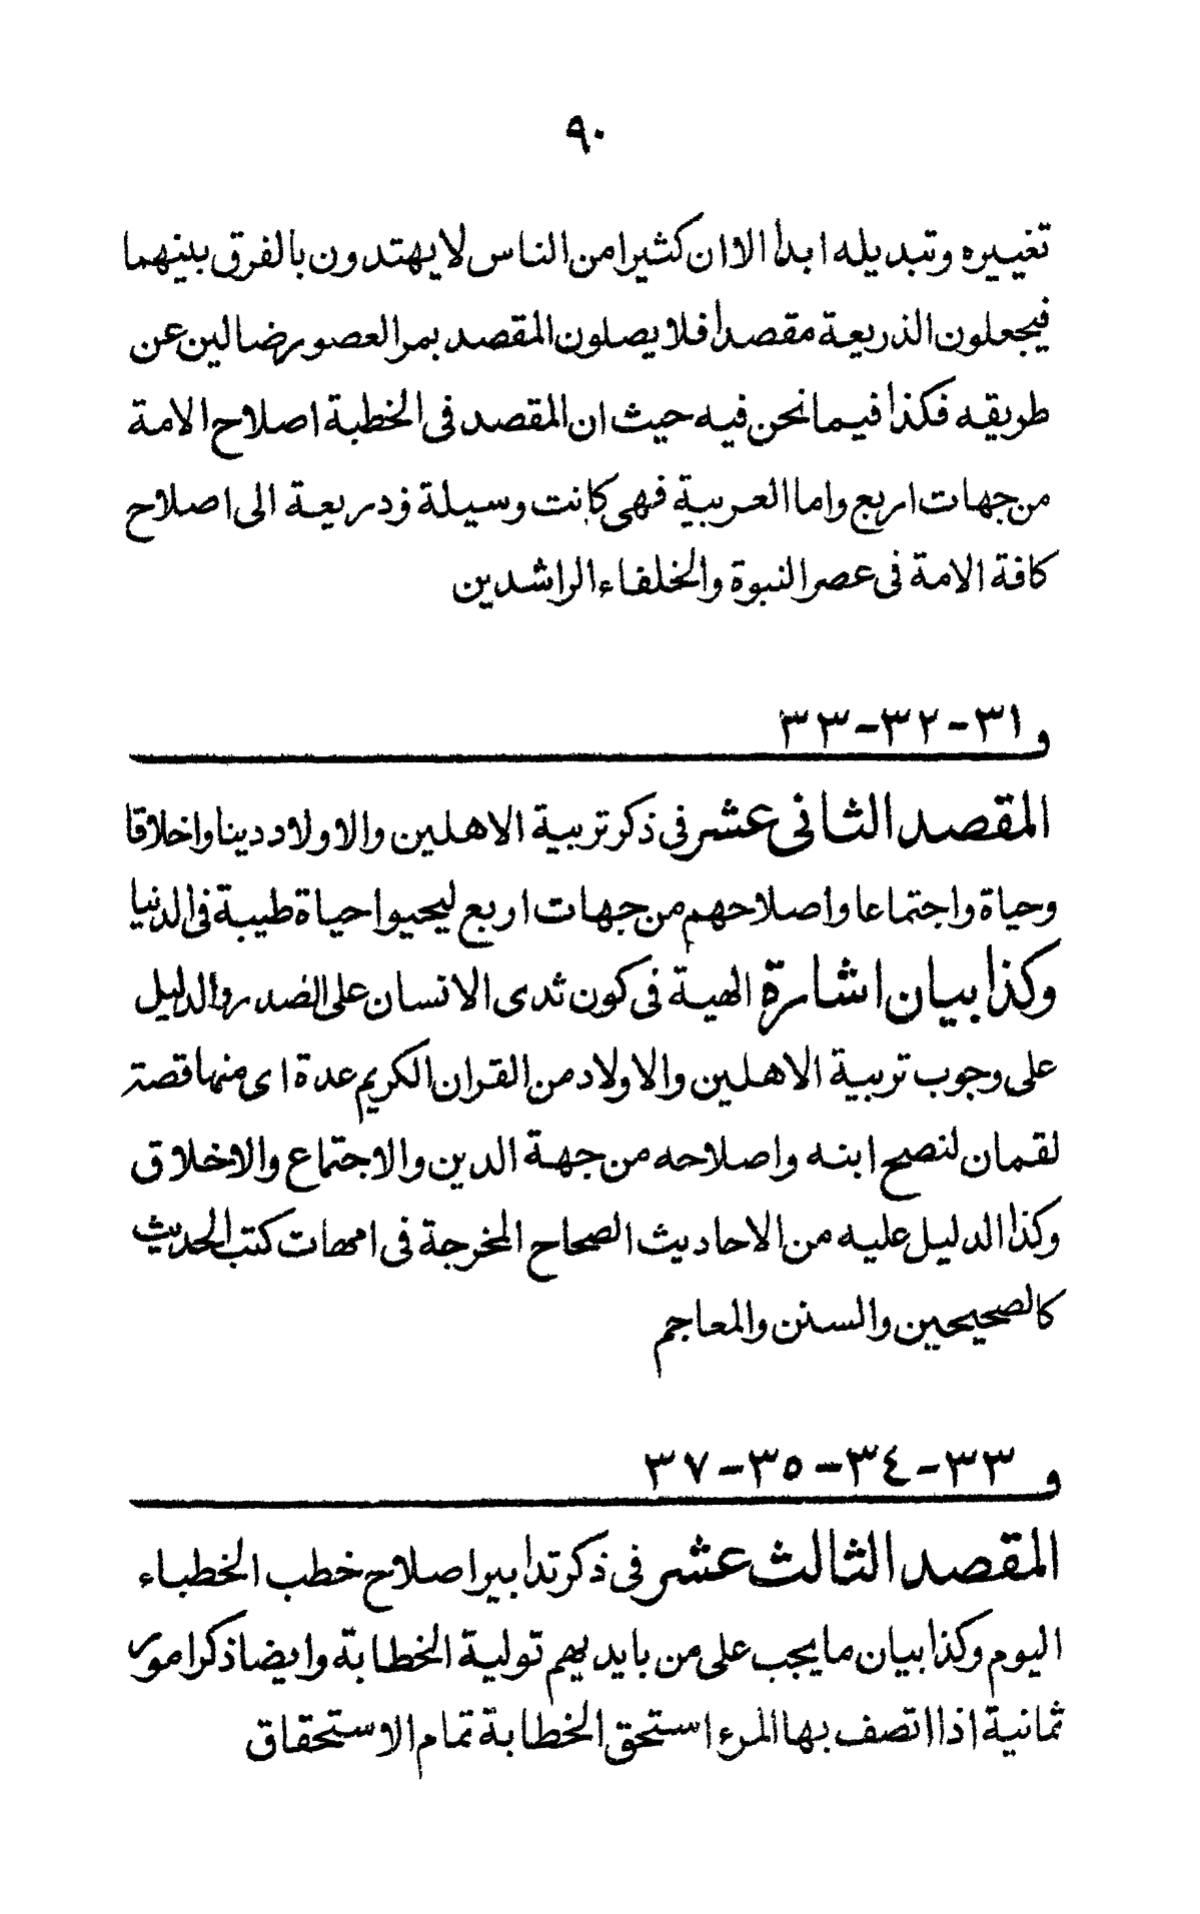 ٩٠
تغييره وتبديله ابدا الا ان كثيرا من الناس لا يهتدون بالفرق بينهما
فيجعلون الذريعة مقصدا فلا يصلون المقصد بمر العصور ضالين عن
طريقه فكذا فيما نحن فيه حيث ان المقصد فى الخطبة اصلاح الامة
من جهات اربع واما العربية فهى كانت وسيلة وذريعة الى اصلاح
كافة الامة فى عصر النبوة والخلفاء الراشدين
و ٣١-٣٢-٣٣
المقصد الثانى عشر فى ذكر تربية الاهلين والاولاد دينا واخلاقا
وحياة واجتماعا واصلاحهم من جهات اربع ليحيوا حياة طيبة فى الدنيا
وكذا بيان اشارة الهية فى كون ثدى الانسان على الصدر والدليل
على وجوب تربية الاهلين والاولاد من القران الكريم عدة اى منها قصة
لقمان لنصح ابنه واصلاحه من جهة الدين والاجتماع والاخلاق
وكذا الدليل عليه من الاحاديث الصحاح المخرجة فى امهات كتب الحديث
كالصحيحين والسنن والمعاجم
و ٣٣-٣٤-٣٥-٣٧
المقصد الثالث عشر فى ذكر تدابير اصلاح خطب الخطباء
اليوم وكذا بيان ما يجب على من بايديهم تولية الخطابة وايضا ذكر امور
ثمانية اذا اتصف بها المرء استحق الخطابة تمام الاستحقاق